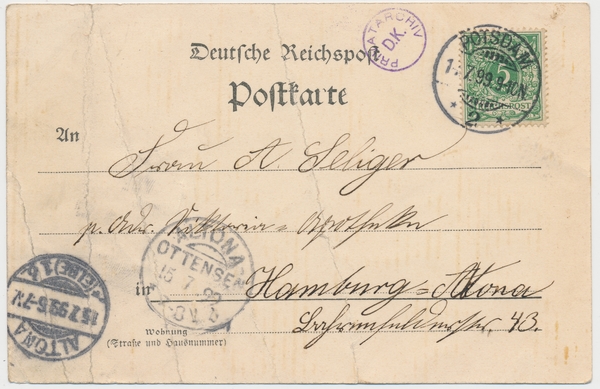 PRIVATARCHIV
D.K.
POTSDAM
7.99. 9-10N.
* 2 *
5
REICHSPOST
Deutsche Reichspost
Postkarte
An
Frau A Seliger
p. Adr. Viktoria-Apotheke
in Hamburg-Altona
Bahrenfelderstr. 43.
Wohnung
(Straße und Hausnummer)
ALTONA
OTTENSEN
15 7 99
ALTONA
15.7.99. 6-7N.